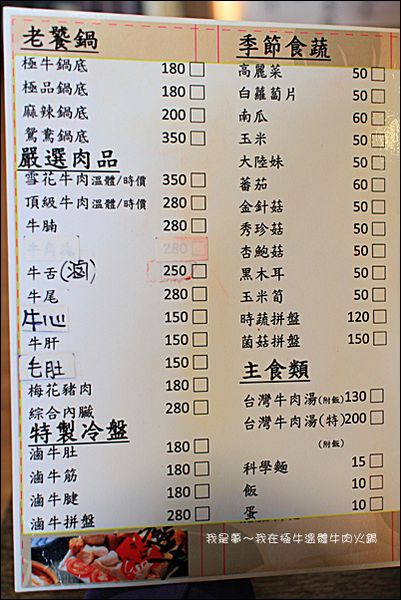 老饕鍋
極牛鍋底 180
極品鍋底 180
麻辣鍋底 200
鴛鴦鍋底 350
嚴選肉品
雪花牛肉溫體/時價 350
頂級牛肉溫體/時價 280
牛腩 280
280
牛舌(滷) 250
牛尾 280
牛心 150
牛肝 150
毛肚 150
梅花豬肉 180
綜合內臟 280
特製冷盤
滷牛肚 180
滷牛筋 180
滷牛腱 180
滷牛拼盤 280
季節食蔬
高麗菜 50
白蘿蔔片 50
南瓜 60
玉米 50
大陸妹 50
蕃茄 60
金針菇 50
秀珍菇 50
杏鮑菇 50
黑木耳 50
玉米筍 50
時蔬拼盤 120
菌菇拼盤 150
主食類
台灣牛肉湯(附飯) 130
台灣牛肉湯(特) 200
(附飯)
科學麵 15
飯 10
蛋 10
我是夢~我在極牛溫體牛肉火鍋